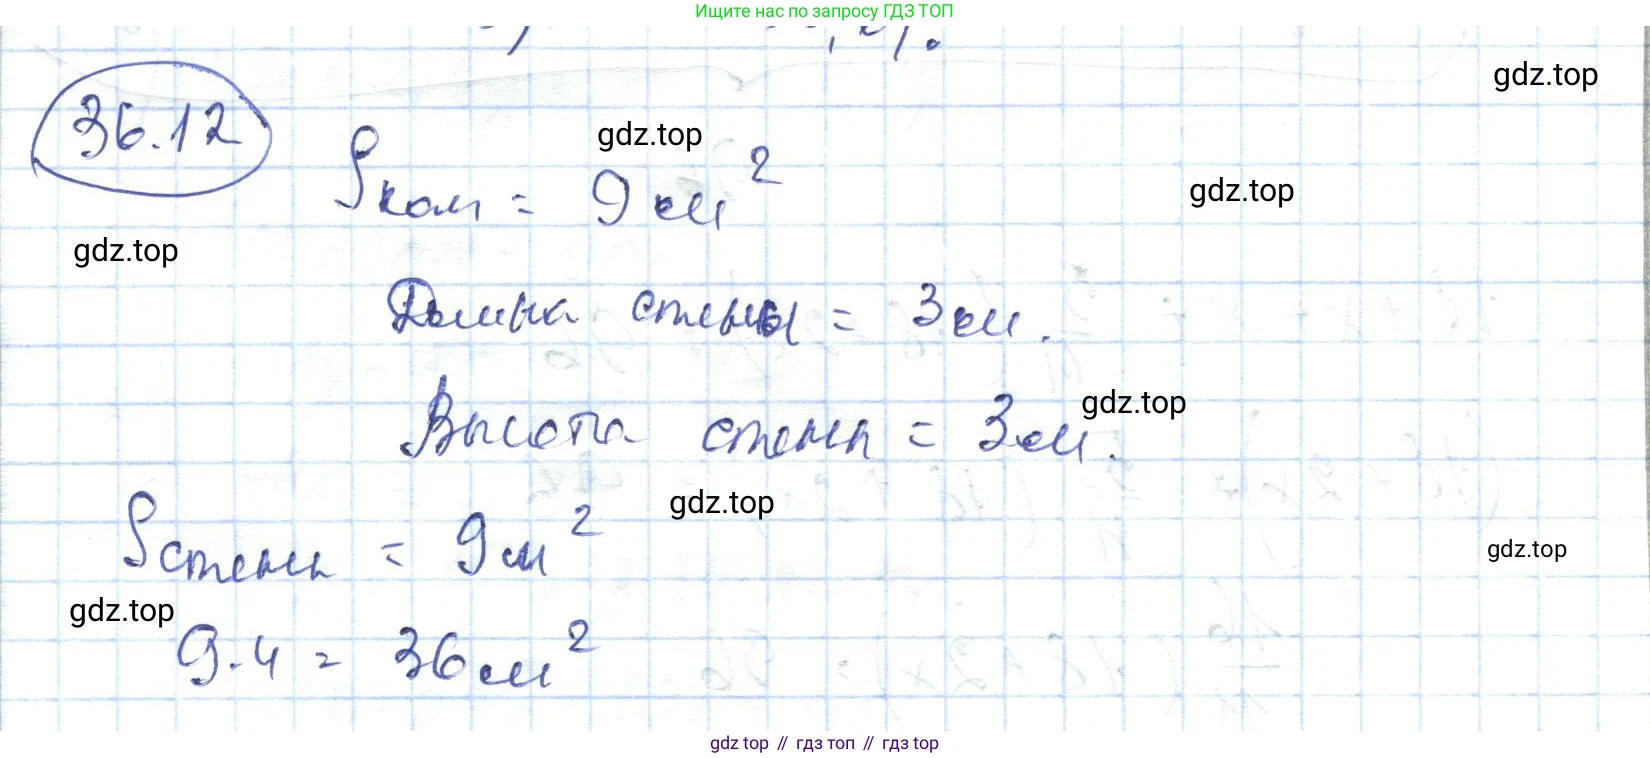 Ищите нас по запросу ГДЗ ТОП
gdz.top
36.12
gdz.top
Sком = 9 см²
gdz.top
gdz.top
Длина стены = 3 см.
Высота стены = 3 см.
gdz.top
gdz.top
Sстены = 9 м²
gdz.top
gdz.top
9·4 = 36 см²
gdz top // гдз топ // гдз top